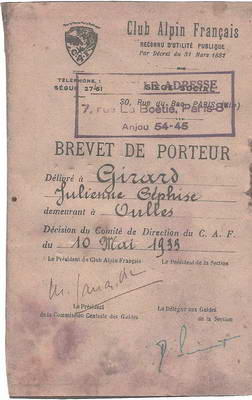 Club Alpin Français
RECONNU D'UTILITÉ PUBLIQUE
Par Décret du 31 Mars 1882
TÉLÉPHONE :
SÉGUR 27-51
SIÈGE SOCIAL
ADRESSE
30, Rue du Bac, PARIS (VIIe)
7, rue La Boëtie, Paris-8
Anjou 54-45
BREVET DE PORTEUR
Délivré à Girard
Julienne Céphise
demeurant à Oulles
Décision du Comité de Direction du C. A. F.
du 10 Mai 1933
Le Président du Club Alpin Français
Le Président de la Section
Le Président
de la Commission Centrale des Guides
Le Délégué aux Guides
de la Section